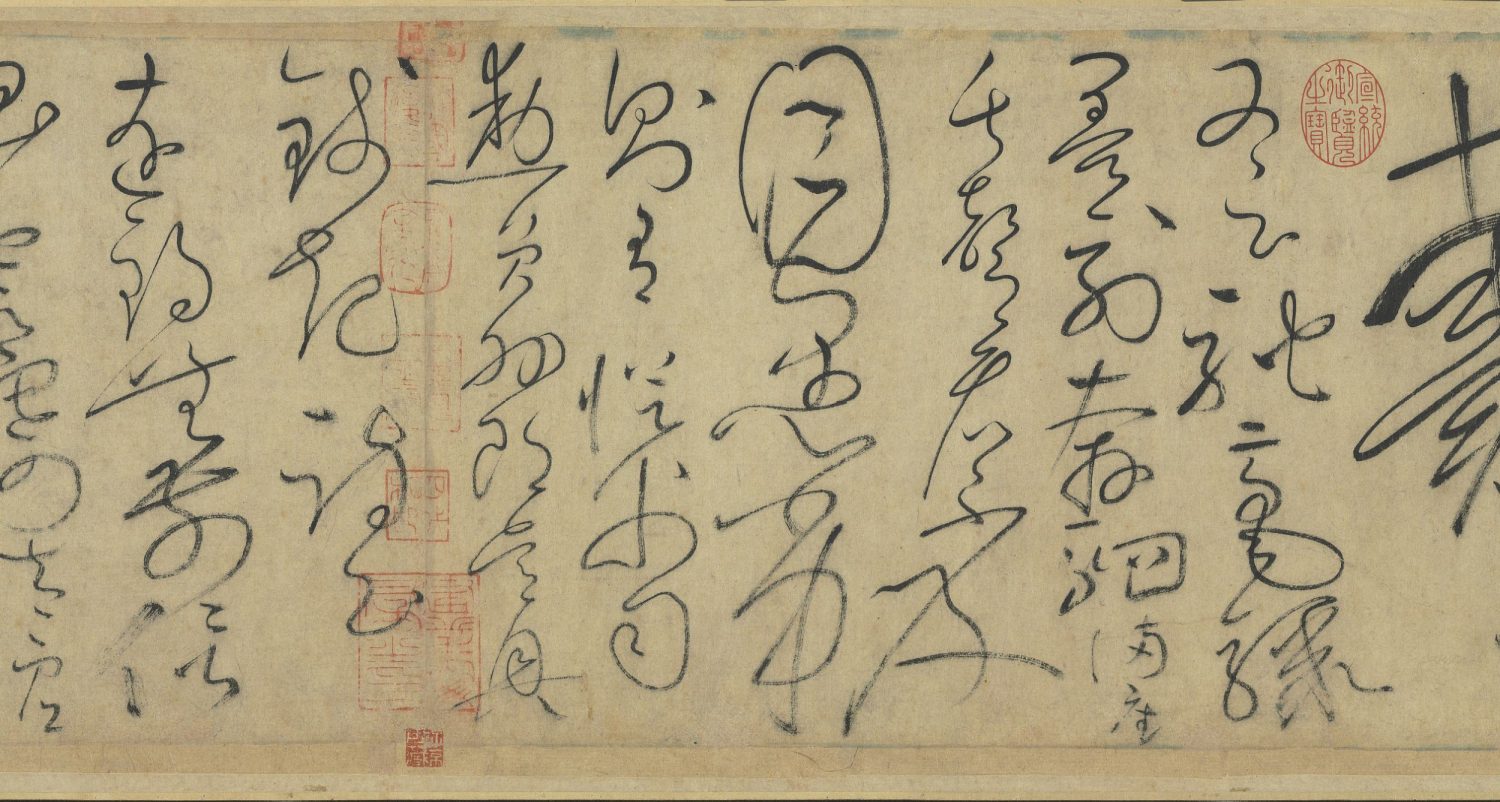 戴
宣統御覽之寶
又云馳毫驟
墨列奔駟滿座
失聲看不及
目愚劣
則有從父司
勳員外郎吳興
錢起詩云
遠錫無前侶
孤雲寄太虛